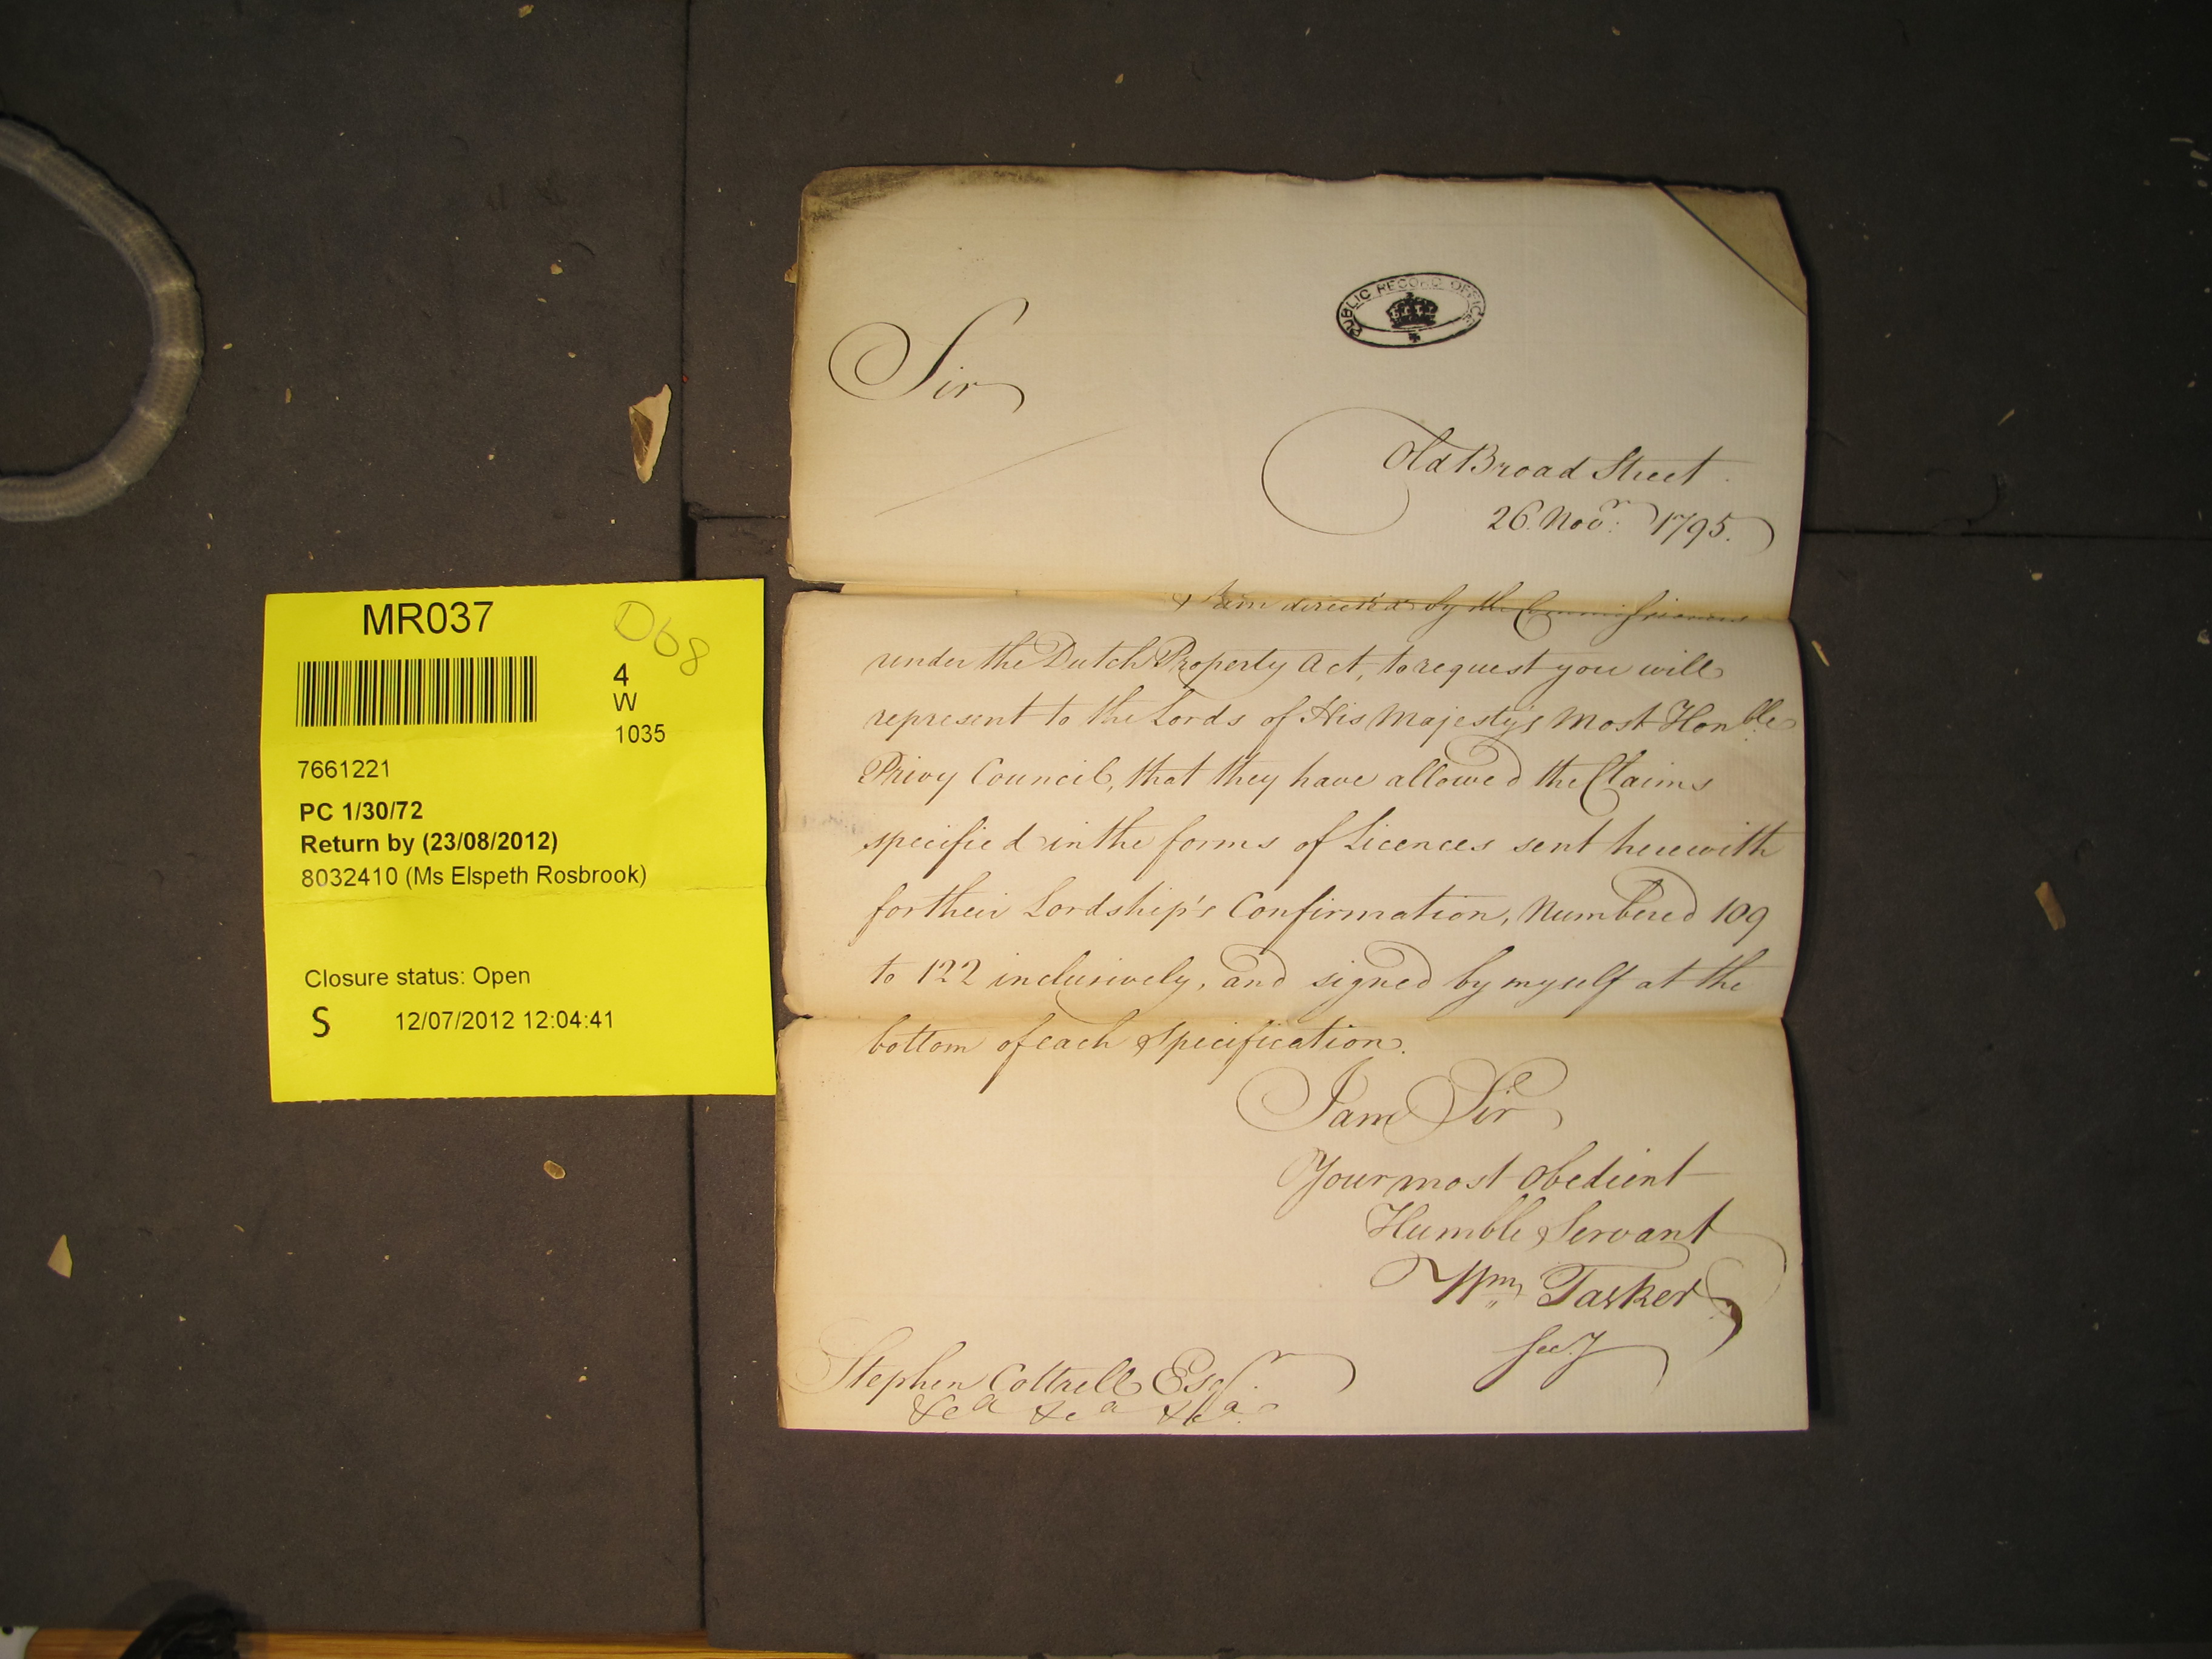 PUBLIC RECORD OFFICE
Sir
Old Broad Street
26. Novr: 1795.
I am directed by the Commissioners
under the Dutch Property Act, to request you will
represent to the Lords of His Majesty's Most Honble
Privy Council, that they have allowed the Claims
specified in the forms of Licences sent herewith
for their Lordship's Confirmation, Numbered 109
to 122 inclusively, and signed by myself at the
bottom of each Specification.
I am Sir
Your most obedient
Humble Servant
Wm Tasker
Secy
Stephen Cottrell Esqr.
&ca &ca &ca
MR037
D68
4
W
1035
7661221
PC 1/30/72
Return by (23/08/2012)
8032410 (Ms Elspeth Rosbrook)
Closure status: Open
S 12/07/2012 12:04:41